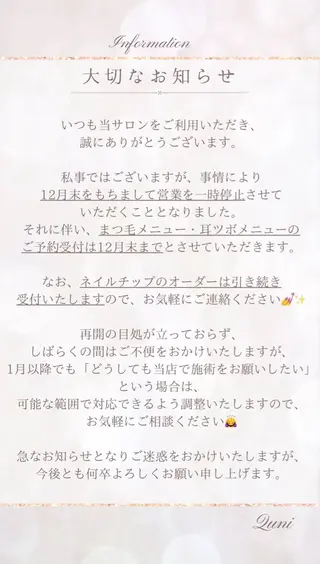 Information
大切なお知らせ
いつも当サロンをご利用いただき、
誠にありがとうございます。
私事ではございますが、事情により
12月末をもちまして営業を一時停止させて
いただくこととなりました。
それに伴い、まつ毛メニュー・耳ツボメニューの
ご予約受付は12月末までとさせていただきます。
なお、ネイルチップのオーダーは引き続き
受付いたしますので、お気軽にご連絡ください💅✨
再開の目処が立っておらず、
しばらくの間はご不便をおかけいたしますが、
1月以降でも「どうしても当店で施術をお願いしたい」
という場合は、
可能な範囲で対応できるよう調整いたしますので、
お気軽にご相談ください🙇‍♀️
急なお知らせとなりご迷惑をおかけいたしますが、
今後とも何卒よろしくお願い申し上げます。
Quni